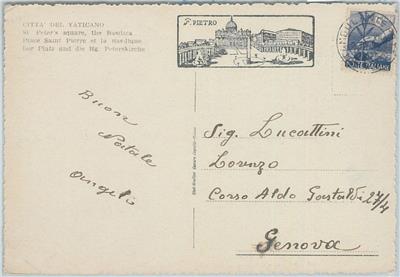 CITTA' DEL VATICANO
St Peter's square, the Basilica
Place Saint Pierre et la Basilique
Der Platz und die Hg. Peterskirche
S. PIETRO
Buon
Natale
Angelo
Sig. Lucattini
Lorenzo
Corso Aldo Gastaldi 27/4
Genova